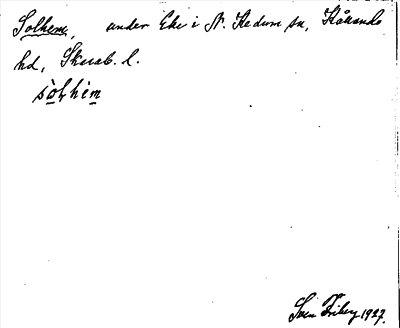 Solhem, under Eke i N. Kedum sn, Kåkands
hd, Skarab. l.
sòlhèm
Sven Friberg 1927.